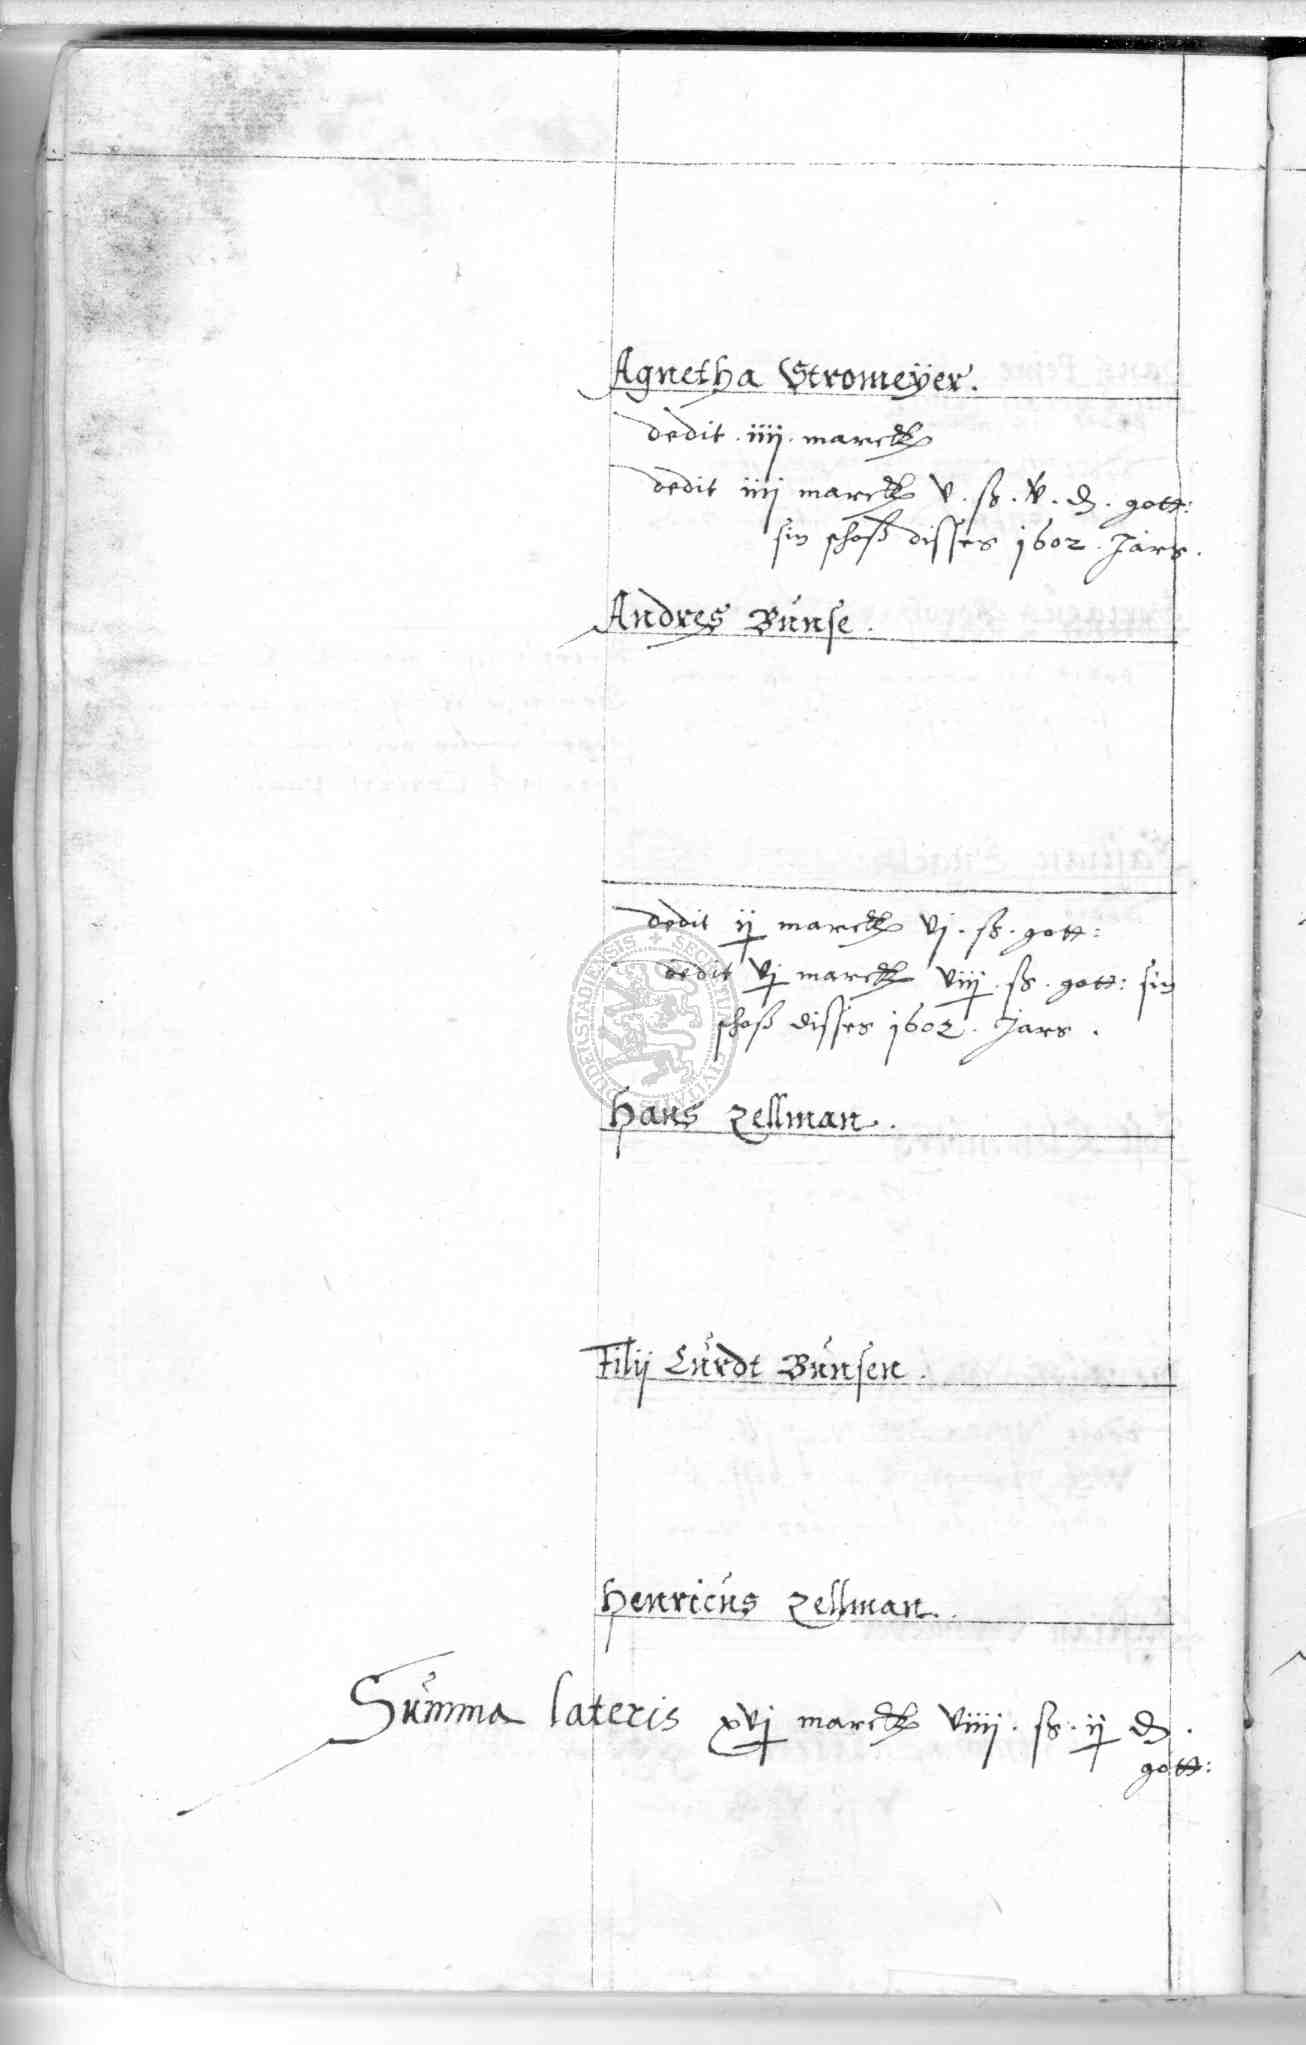 Agnetha Stromeÿer.
dedit . iiij . marck
dedit iiij marck v . ß . v . d . gott:
sin schoß disses 1602 . Jars .
Andres Bunse .
dedit ij marck vj . ß . gott:
dedit vj marck viij . ß . gott: sin
schoß disses 1602 . Jars .
Hans Zellman .
Filij Curdt Bunsen .
Henricus Zellman .
Summa lateris xvj marck viiij . ß . ij d .
gott:
SECRETUM CIVITATIS DUDERSTADIENSIS